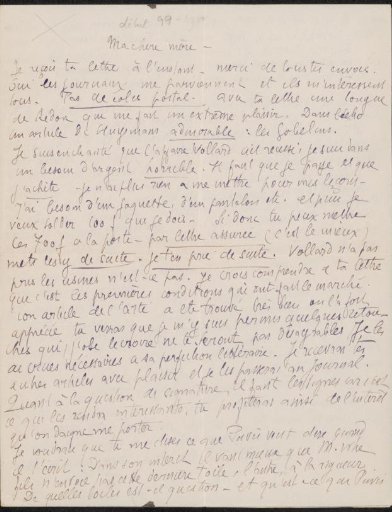 début 99
Ma chère mère -
Je reçois ta lettre à l'instant - merci de tous tes envois.
Oui les journaux me parviennent et ils m'intéressent
tous. Pas de colis postal - avec ta lettre une longue
de Redon qui me fait un extrême plaisir. Dans l'écho
un article de Huysmans admirable : les Gobelins.
Je suis enchanté que l'affaire Vollard ait réussi, je suis dans
un besoin d'argent horrible. Il faut que je passe et que
j'achète - je n'ai plus rien a me mettre pour mes leçons -
J'ai besoin d'une jaquette, d'un pantalon etc. et puis je
veux solder 100 f que je dois - donc tu peux mettre
ces 700 f a la poste - par lettre assurée (c'est le mieux)
mets les y de suite - je t'en prie de suite. Vollard n'a pas
pris les usines n'est-ce pas. Je crois comprendre a ta lettre
que c'est ces premières conditions qui ont fait le marché
ton article de l'art a été trouvé très bien on l'a fort
apprécié tu verras que je m'y suis permis quelques retou-
ches qui, j'ose le croire ne te seront pas désagréables. Je les
ai crues nécessaires a sa perfection littéraire. Je recevrai les
autres articles avec plaisir et je les passerai au journal.
Quant à la question de connaître, il faut l'
ce qui les rendra intéressants, tu profiteras ainsi de l'intérêt
qu'on daigne me porter.
Je voudrais que tu me dises ce que Puvis veut dire quand
il t'écrit : Dans son intérêt il vaut mieux que M. votre
fils n'envoie pas cette dernière toile, l'autre, à la rigueur
De quelles toiles est-il question - et qu'est-ce que Puvis